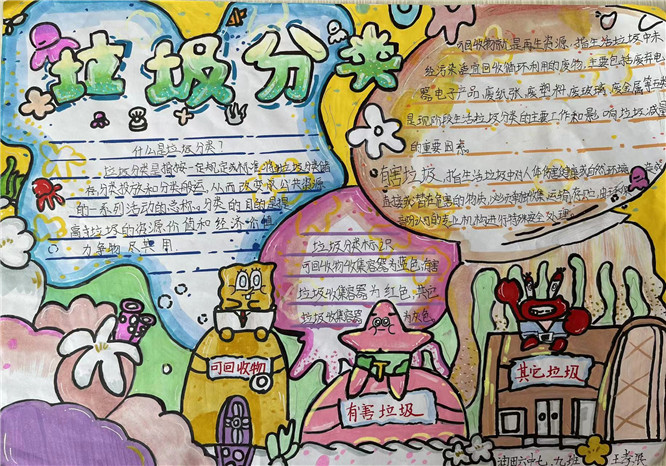 垃圾分类
什么是垃圾分类?
垃圾分类是指按一定规定或标准将垃圾分类储
存、分类投放和分类搬运,从而转变成公共资源
的一系列活动的总称。分类的目的是提
高垃圾的资源价值和经济价值
力争物尽其用
可回收物就是再生资源,指生活垃圾中未
经污染适宜回收循环利用的废物,主要包括废弃电
器电子产品、废纸张、废塑料、废玻璃、废金属等五类
是现阶段生活垃圾分类的主要工作和影响垃圾减量
的重要因素
有害垃圾,指生活垃圾中对人体健康或自然环境造成
直接或潜在危害的物质,必须单独收集、运输、存贮,由环保
部门认可的专业机构进行特殊安全处理。
垃圾分类标识
可回收物收集容器为蓝色,有害
垃圾收集容器为红色,其它
垃圾收集容器 为灰色
可回收物
有害垃圾
其它垃圾
油田六中七、九班